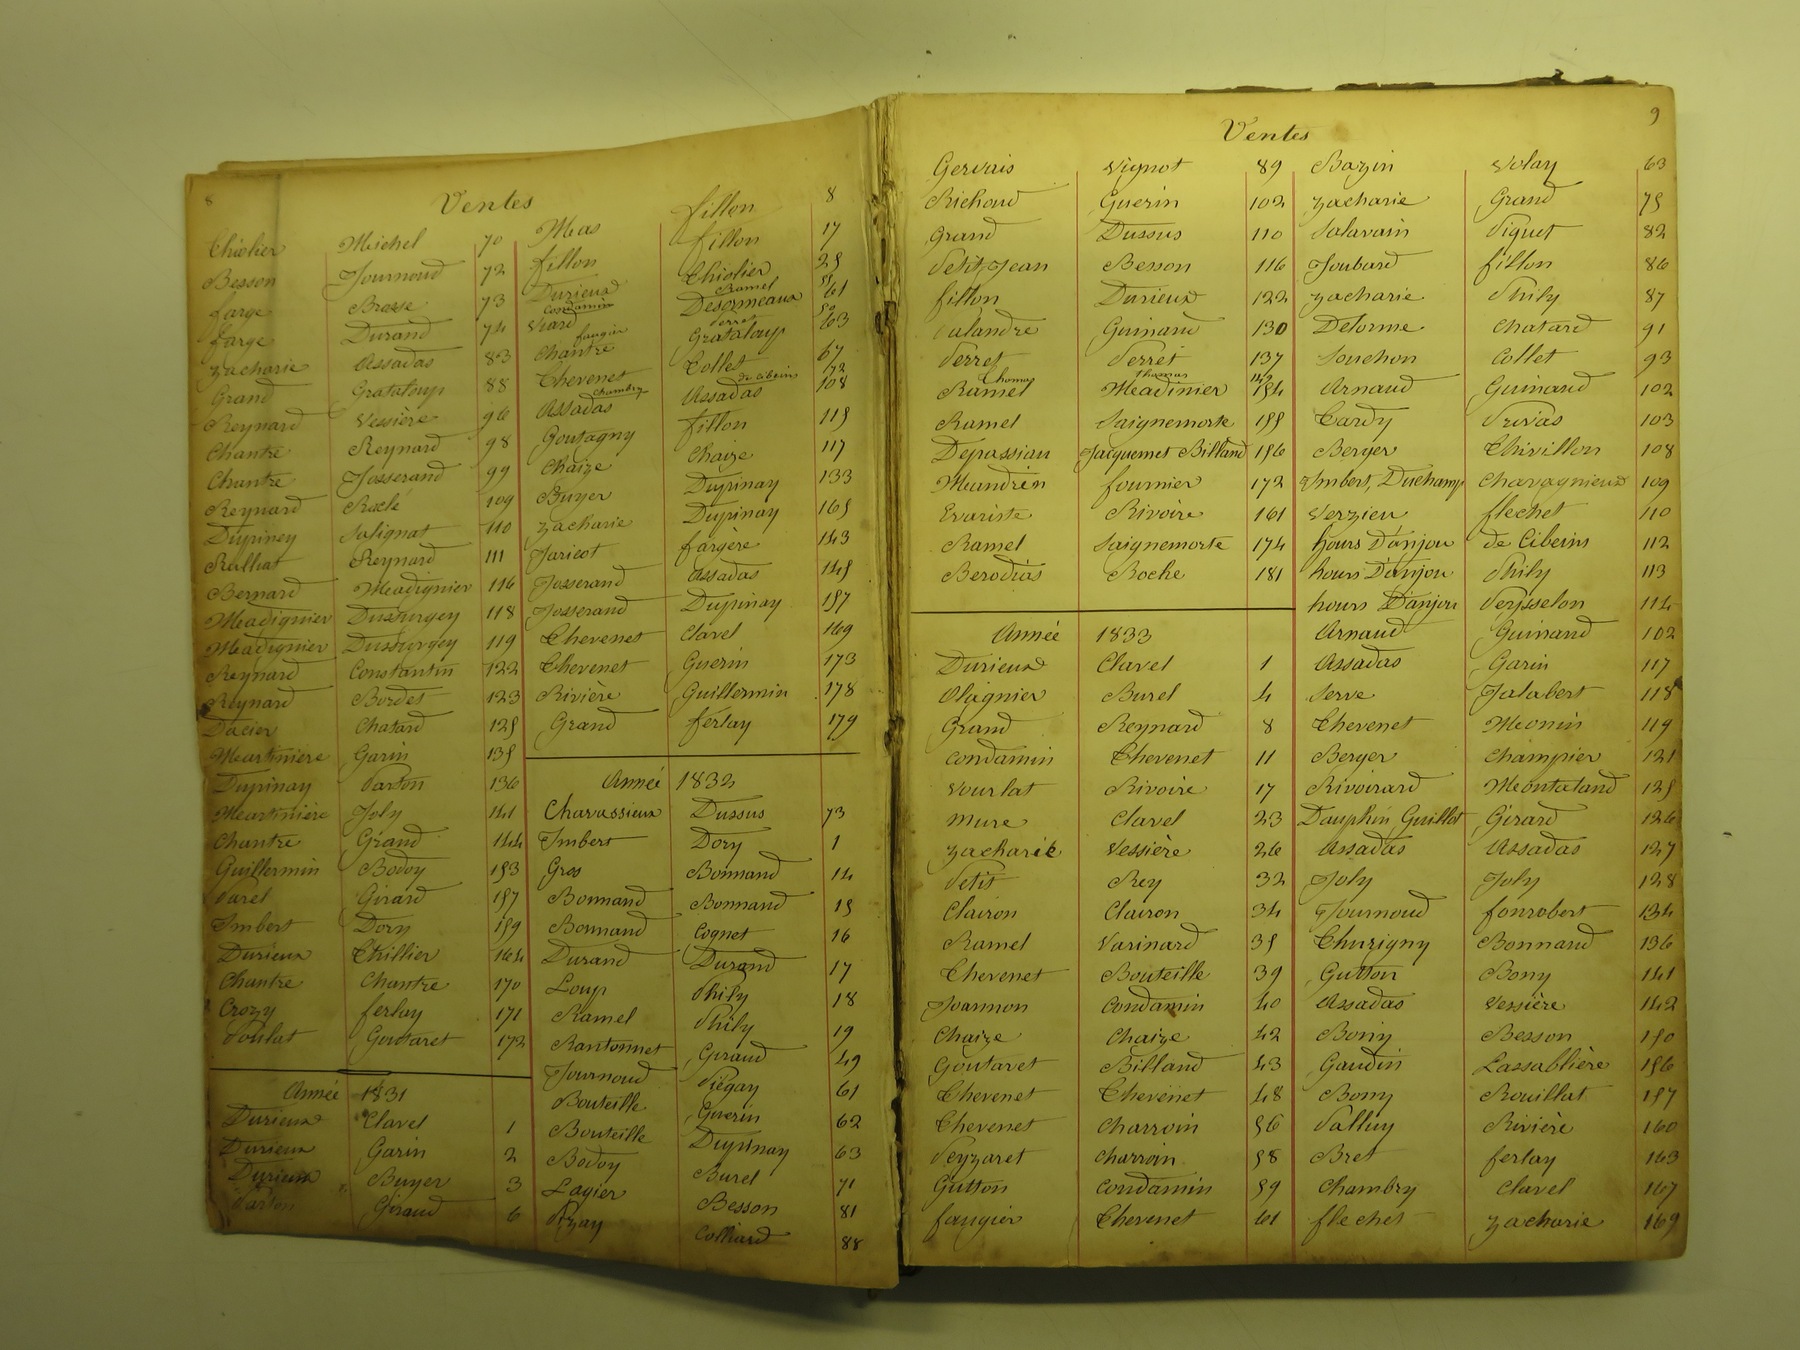 8
Ventes
Chiolier Michel 70
Besson Journoud 72
farge Brosse 73
farge Durand 74
Zacharie Assadas 83
Grand Grataloup 88
Reynard Vessière 96
Chantre Reynard 98
Chantre Josserand 99
Reynard Raclé 109
Dupiney Salignat 110
Ralliat Reynard 111
Bernard Meadignier 116
Meadignier Dussurgey 118
Meadignier Dussurgey 119
Reynard Constantin 122
Reynard Bordes 123
Dacier Chatard 125
Meartinière Garin 135
Dupinay Parton 136
Meartinière Joly 141
Chantre Grand 144
Guillermin Bodoy 153
Parel Girard 157
Imbert Dory 159
Durieux Thillier 164
Chantre Chantre 170
Crozy ferlay 171
Poulat Goutaret 172
Année 1831
Durieux Clavel 1
Durieux Garin 2
Durieux Buyer 3
Parton Giraud 6
Meas fillon 8
fillon fillon 17
Durieux Chiolier 25
Condamin Ramel 55
Viard Desormeaux 61
faugier Perret 50
Chantre Grataloup 63
Chevenet Collet 67
Chambry de Cibeins 72
Assadas Assadas 108
Goutagny fillon 115
Chaize Chaize 117
Buyer Dupinay 133
Zacharie Dupinay 165
Jaricot fargère 143
Josserand Assadas 145
Josserand Dupinay 157
Chevenet Clavel 169
Chevenet Guerin 173
Rivière Guillermin 178
Grand ferlay 179
Année 1832
Chavassieux Dussus 73
Imbert Dory 1
Gros Bonnand 14
Bonnand Bonnand 15
Bonnand Cognet 16
Durand Durand 17
Loup Phily 18
Ramel Phily 19
Rantonnet Giraud 49
Journoud Piégay 61
Bouteille Guerin 62
Bouteille Dupinay 63
Bodoy Burel 71
Lagier Besson 81
Colliard 88
9
Ventes
Gervais Vignot 89
Richoud Guerin 102
Grand Dussus 110
PetitJean Besson 116
fillon Durieux 122
Lalandre Guinand 130
Perret Perret 137
Thomas Thomas 142
Ramel Meadinier 154
Ramel Saignemorte 155
Depassian Jacquemet Billand 156
Meandrin fournier 172
Evariste Rivoire 161
Ramel Saignemorte 174
Berodias Roche 181
Année 1833
Durieux Clavel 1
Olagnier Burel 4
Grand Reynard 8
Condamin Chevenet 11
Vourlat Rivoire 17
Mure Clavel 23
Zacharie Vessière 26
Petit Rey 32
Clairon Clairon 34
Ramel Varinard 35
Chevenet Bouteille 39
Joannon Condamin 40
Chaize Chaize 42
Goutaret Billand 43
Chevenet Chevenet 48
Chevenet Charroin 56
Peyzaret Charroin 58
Gutton Condamin 59
faugier Chevenet 61
Bazin Volay 63
Zacharie Grand 75
Salavain Piquet 82
Joubard fillon 86
Zacharie Phily 87
Delorme Chatard 91
Souchon Collet 93
Arnaud Guinand 102
Tardy Privas 103
Berger Thivillon 108
Imbert, Duchamp Chavagnieux 109
Verzieu flechet 110
hours D'anjou de Cibeins 112
hours D'anjou Phily 113
hours D'anjou Peysselon 114
Arnaud Guinand 102
Assadas Garin 117
Serve Jalabert 118
Chevenet Meonin 119
Berger Champier 121
Rivoirard Meontaland 125
Dauphin Guillot Girard 126
Assadas Assadas 127
Joly Joly 128
Journoud fonrobert 134
Thurigny Bonnand 136
Gutton Bony 141
Assadas Vessière 142
Bony Besson 150
Gaudin Lassablière 156
Bony Rouillat 157
Palluy Rivière 160
Bret ferlay 163
Chambry Clavel 167
flechet Zacharie 169